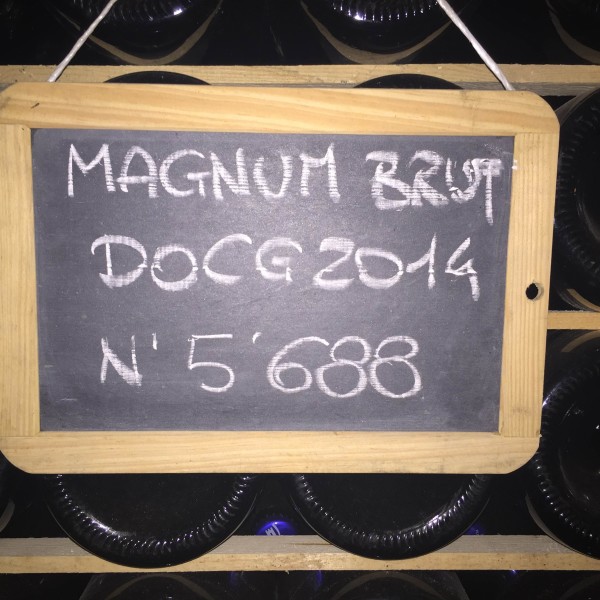 MAGNUM BRUT
DOCG 2014
N' 5'688